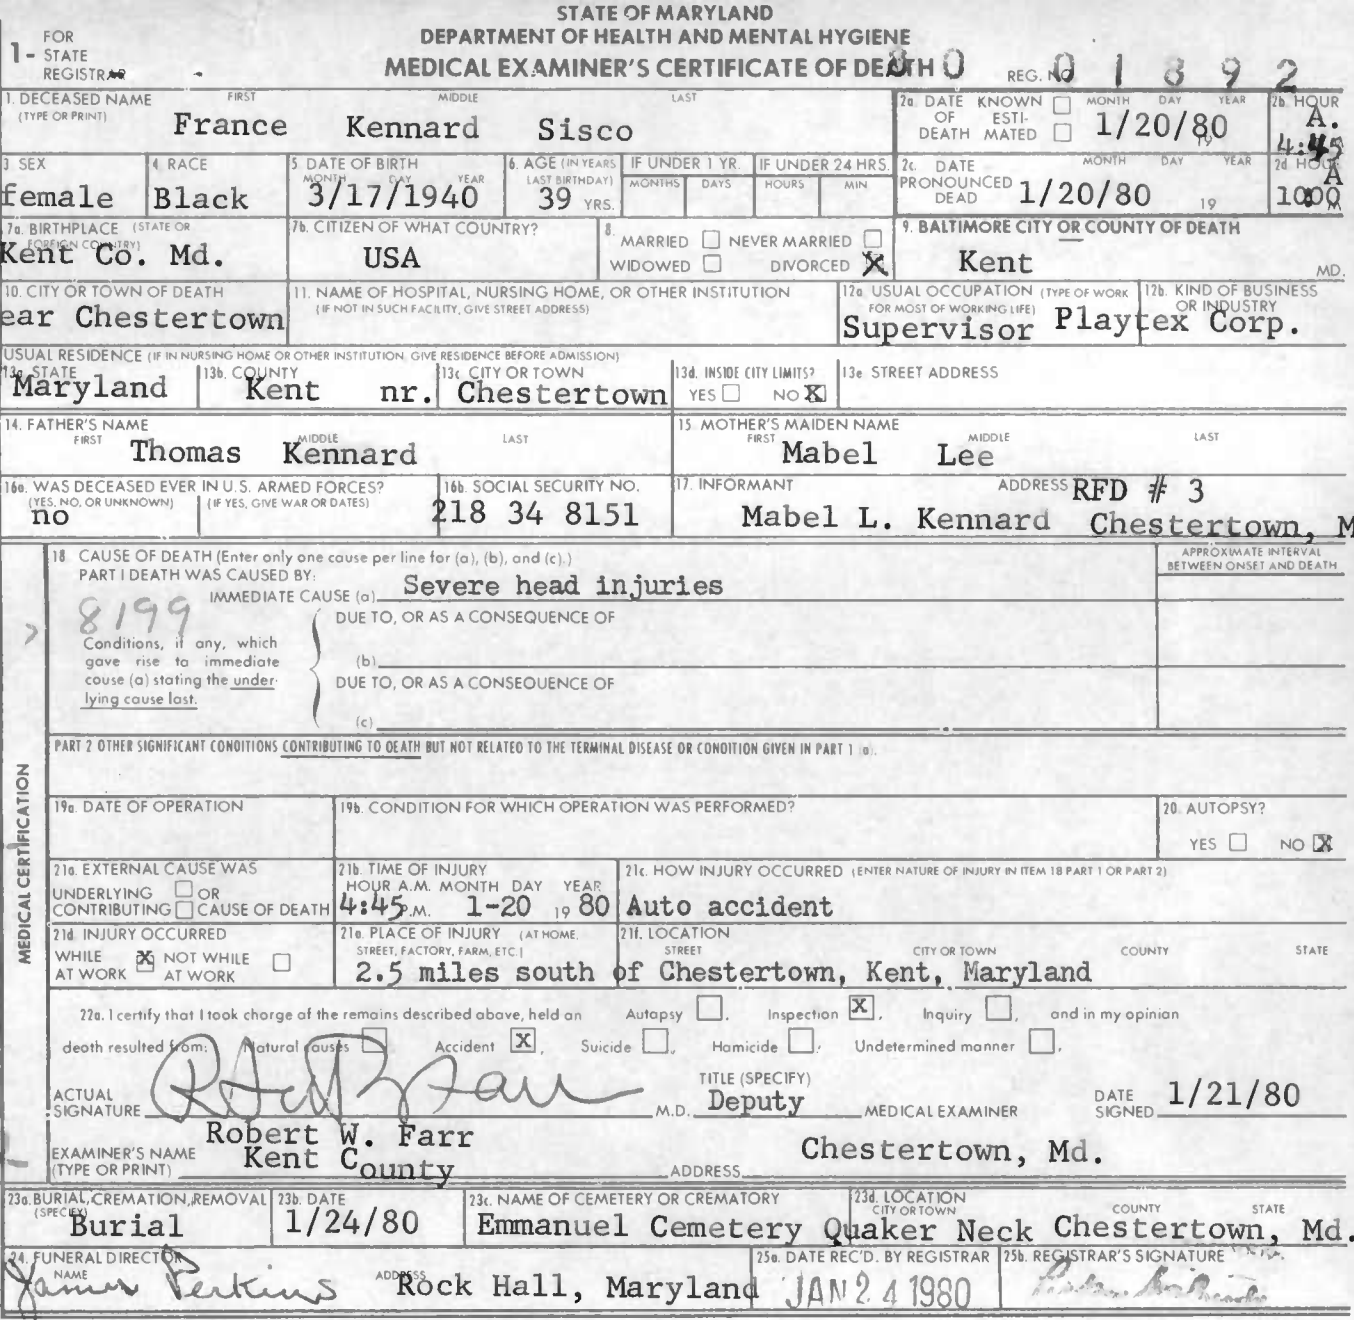 STATE OF MARYLAND
DEPARTMENT OF HEALTH AND MENTAL HYGIENE
MEDICAL EXAMINER'S CERTIFICATE OF DEATH
1- FOR STATE REGISTRAR
80 REG. NO 01892
1. DECEASED NAME (TYPE OR PRINT) FIRST MIDDLE LAST
France Kennard Sisco
2a. DATE OF DEATH KNOWN ESTIMATED MONTH DAY YEAR 1/20/80 19
2b. HOUR A. 4:45
3 SEX female
4. RACE Black
5. DATE OF BIRTH MONTH DAY YEAR 3/17/1940
6. AGE (IN YEARS LAST BIRTHDAY) 39 YRS.
IF UNDER 1 YR. MONTHS DAYS
IF UNDER 24 HRS. HOURS MIN
2c. DATE PRONOUNCED DEAD MONTH DAY YEAR 1/20/80 19
2d. HOUR A 1000 M
7a. BIRTHPLACE (STATE OR FOREIGN COUNTRY) Kent Co. Md.
7b. CITIZEN OF WHAT COUNTRY? USA
8. MARRIED NEVER MARRIED WIDOWED DIVORCED X
9. BALTIMORE CITY OR COUNTY OF DEATH Kent MD.
10. CITY OR TOWN OF DEATH ear Chestertown
11. NAME OF HOSPITAL, NURSING HOME, OR OTHER INSTITUTION (IF NOT IN SUCH FACILITY, GIVE STREET ADDRESS)
12a. USUAL OCCUPATION (TYPE OF WORK FOR MOST OF WORKING LIFE) Supervisor
12b. KIND OF BUSINESS OR INDUSTRY Playtex Corp.
USUAL RESIDENCE (IF IN NURSING HOME OR OTHER INSTITUTION, GIVE RESIDENCE BEFORE ADMISSION)
13a. STATE Maryland
13b. COUNTY Kent
13c. CITY OR TOWN nr. Chestertown
13d. INSIDE CITY LIMITS? YES NO X
13e. STREET ADDRESS
14. FATHER'S NAME FIRST MIDDLE LAST Thomas Kennard
15. MOTHER'S MAIDEN NAME FIRST MIDDLE LAST Mabel Lee
16a. WAS DECEASED EVER IN U.S. ARMED FORCES? (YES, NO, OR UNKNOWN) (IF YES, GIVE WAR OR DATES) no
16b. SOCIAL SECURITY NO. 218 34 8151
17. INFORMANT Mabel L. Kennard
ADDRESS RFD # 3 Chestertown, M
MEDICAL CERTIFICATION
18 CAUSE OF DEATH (Enter only one cause per line for (a), (b), and (c).)
APPROXIMATE INTERVAL BETWEEN ONSET AND DEATH
PART I DEATH WAS CAUSED BY:
IMMEDIATE CAUSE (a) Severe head injuries
8199
DUE TO, OR AS A CONSEQUENCE OF
Conditions, if any, which gave rise to immediate cause (a) stating the underlying cause last.
(b)
DUE TO, OR AS A CONSEQUENCE OF
(c)
PART 2 OTHER SIGNIFICANT CONDITIONS CONTRIBUTING TO DEATH BUT NOT RELATED TO THE TERMINAL DISEASE OR CONDITION GIVEN IN PART 1 (a).
19a. DATE OF OPERATION
19b. CONDITION FOR WHICH OPERATION WAS PERFORMED?
20. AUTOPSY? YES NO X
21a. EXTERNAL CAUSE WAS UNDERLYING OR CONTRIBUTING CAUSE OF DEATH
21b. TIME OF INJURY HOUR A.M. MONTH DAY YEAR 4:45 P.M. 1-20 19 80
21c. HOW INJURY OCCURRED (ENTER NATURE OF INJURY IN ITEM 18 PART 1 OR PART 2) Auto accident
21d. INJURY OCCURRED WHILE AT WORK X NOT WHILE AT WORK
21e. PLACE OF INJURY (AT HOME, STREET, FACTORY, FARM, ETC.)
21f. LOCATION STREET CITY OR TOWN COUNTY STATE
2.5 miles south of Chestertown, Kent, Maryland
22a. I certify that I took charge of the remains described above, held an Autopsy , Inspection X , Inquiry , and in my opinion
death resulted from: Natural causes Accident X , Suicide , Homicide , Undetermined manner .
ACTUAL SIGNATURE M.D.
TITLE (SPECIFY) Deputy MEDICAL EXAMINER
DATE SIGNED 1/21/80
EXAMINER'S NAME (TYPE OR PRINT) Robert W. Farr Kent County
ADDRESS Chestertown, Md.
23a. BURIAL, CREMATION, REMOVAL (SPECIFY) Burial
23b. DATE 1/24/80
23c. NAME OF CEMETERY OR CREMATORY Emmanuel Cemetery
23d. LOCATION CITY OR TOWN COUNTY STATE Quaker Neck Chestertown, Md.
24. FUNERAL DIRECTOR NAME James Perkins
ADDRESS Rock Hall, Maryland
25a. DATE REC'D. BY REGISTRAR JAN 24 1980
25b. REGISTRAR'S SIGNATURE